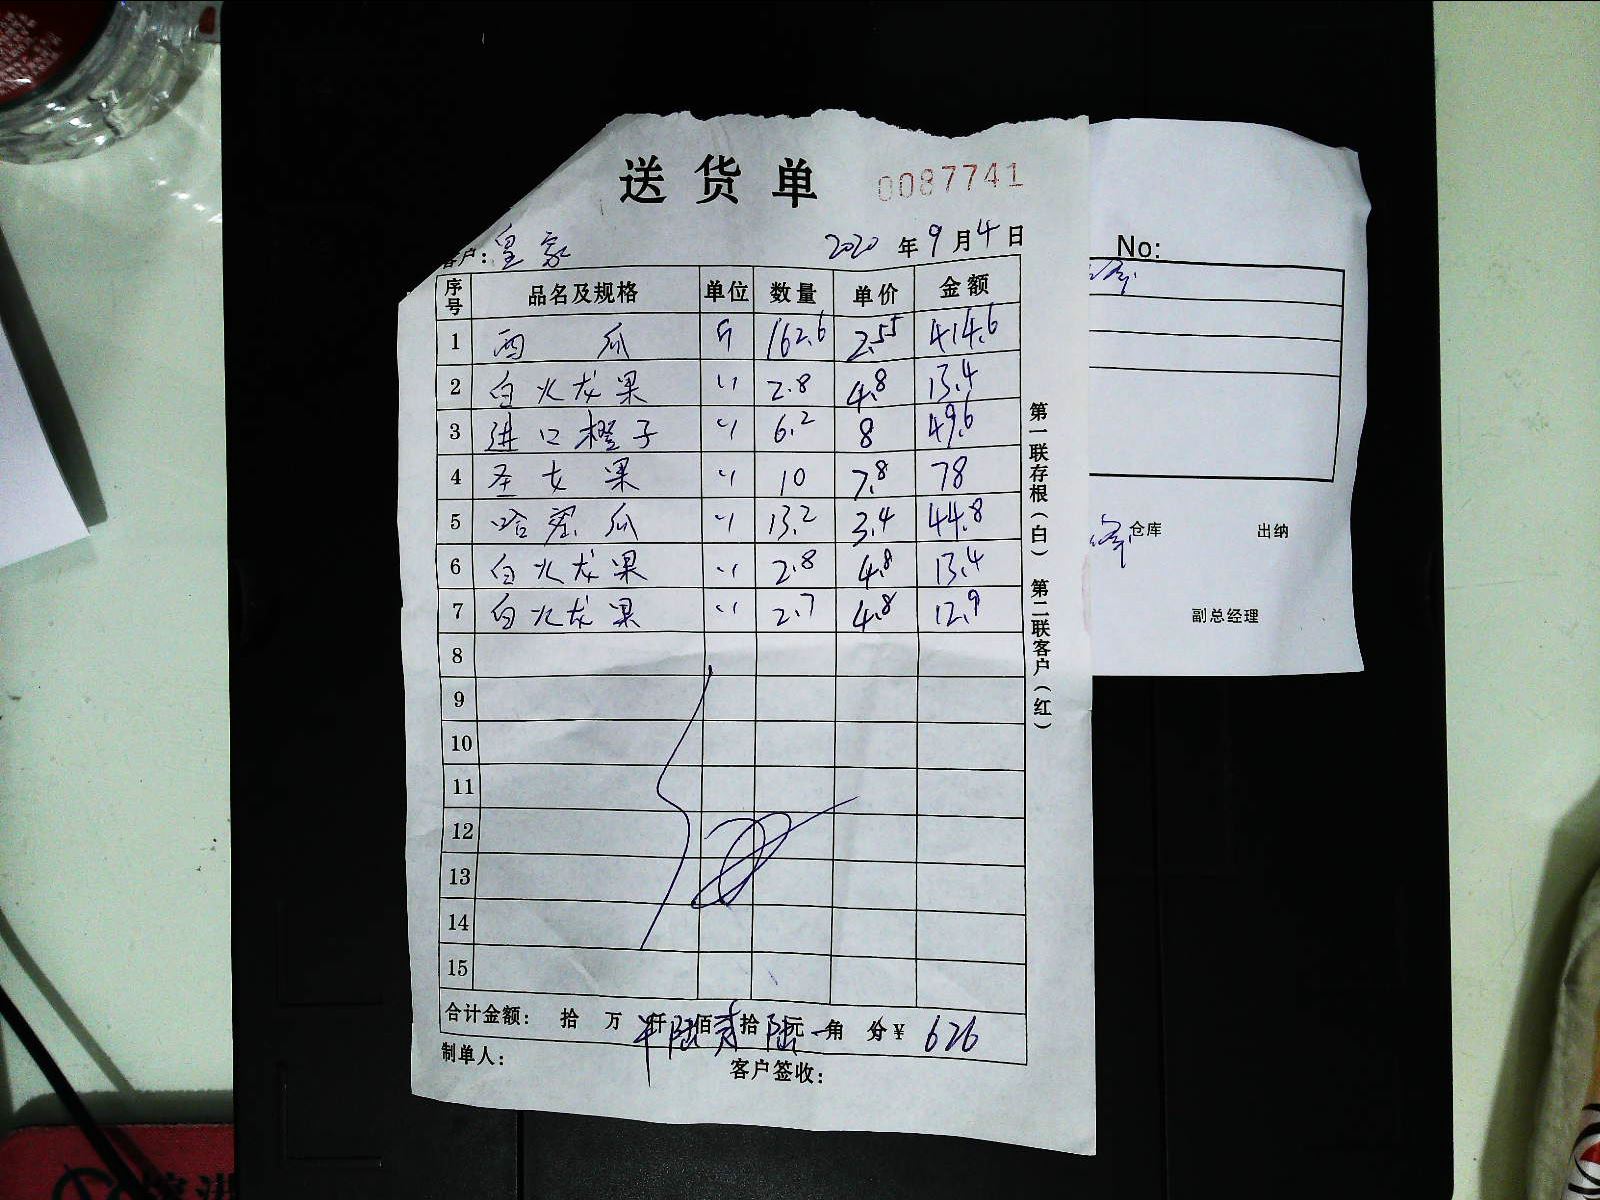 送货单 0087741
客户：皇家 2020年9月4日
序号 品名及规格 单位 数量 单价 金额
1 西瓜 斤 162.6 2.55 414.6
2 白火龙果 〃 2.8 4.8 13.4
3 进口橙子 〃 6.2 8 49.6
4 圣女果 〃 10 7.8 78
5 哈密瓜 〃 13.2 3.4 44.8
6 白火龙果 〃 2.8 4.8 13.4
7 白火龙果 〃 2.7 4.8 12.9
8
9
10
11
12
13
14
15
合计金额： 拾 万 仟陆佰贰拾陆元 角 分￥ 626
制单人： 客户签收：
第一联存根（白） 第二联客户（红）
No:
仓库 出纳
副总经理